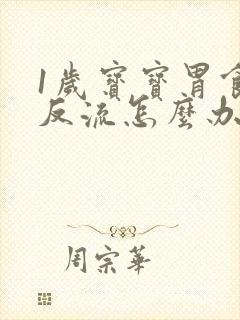 1歲寶寶胃食
反流怎麼办
周宗華